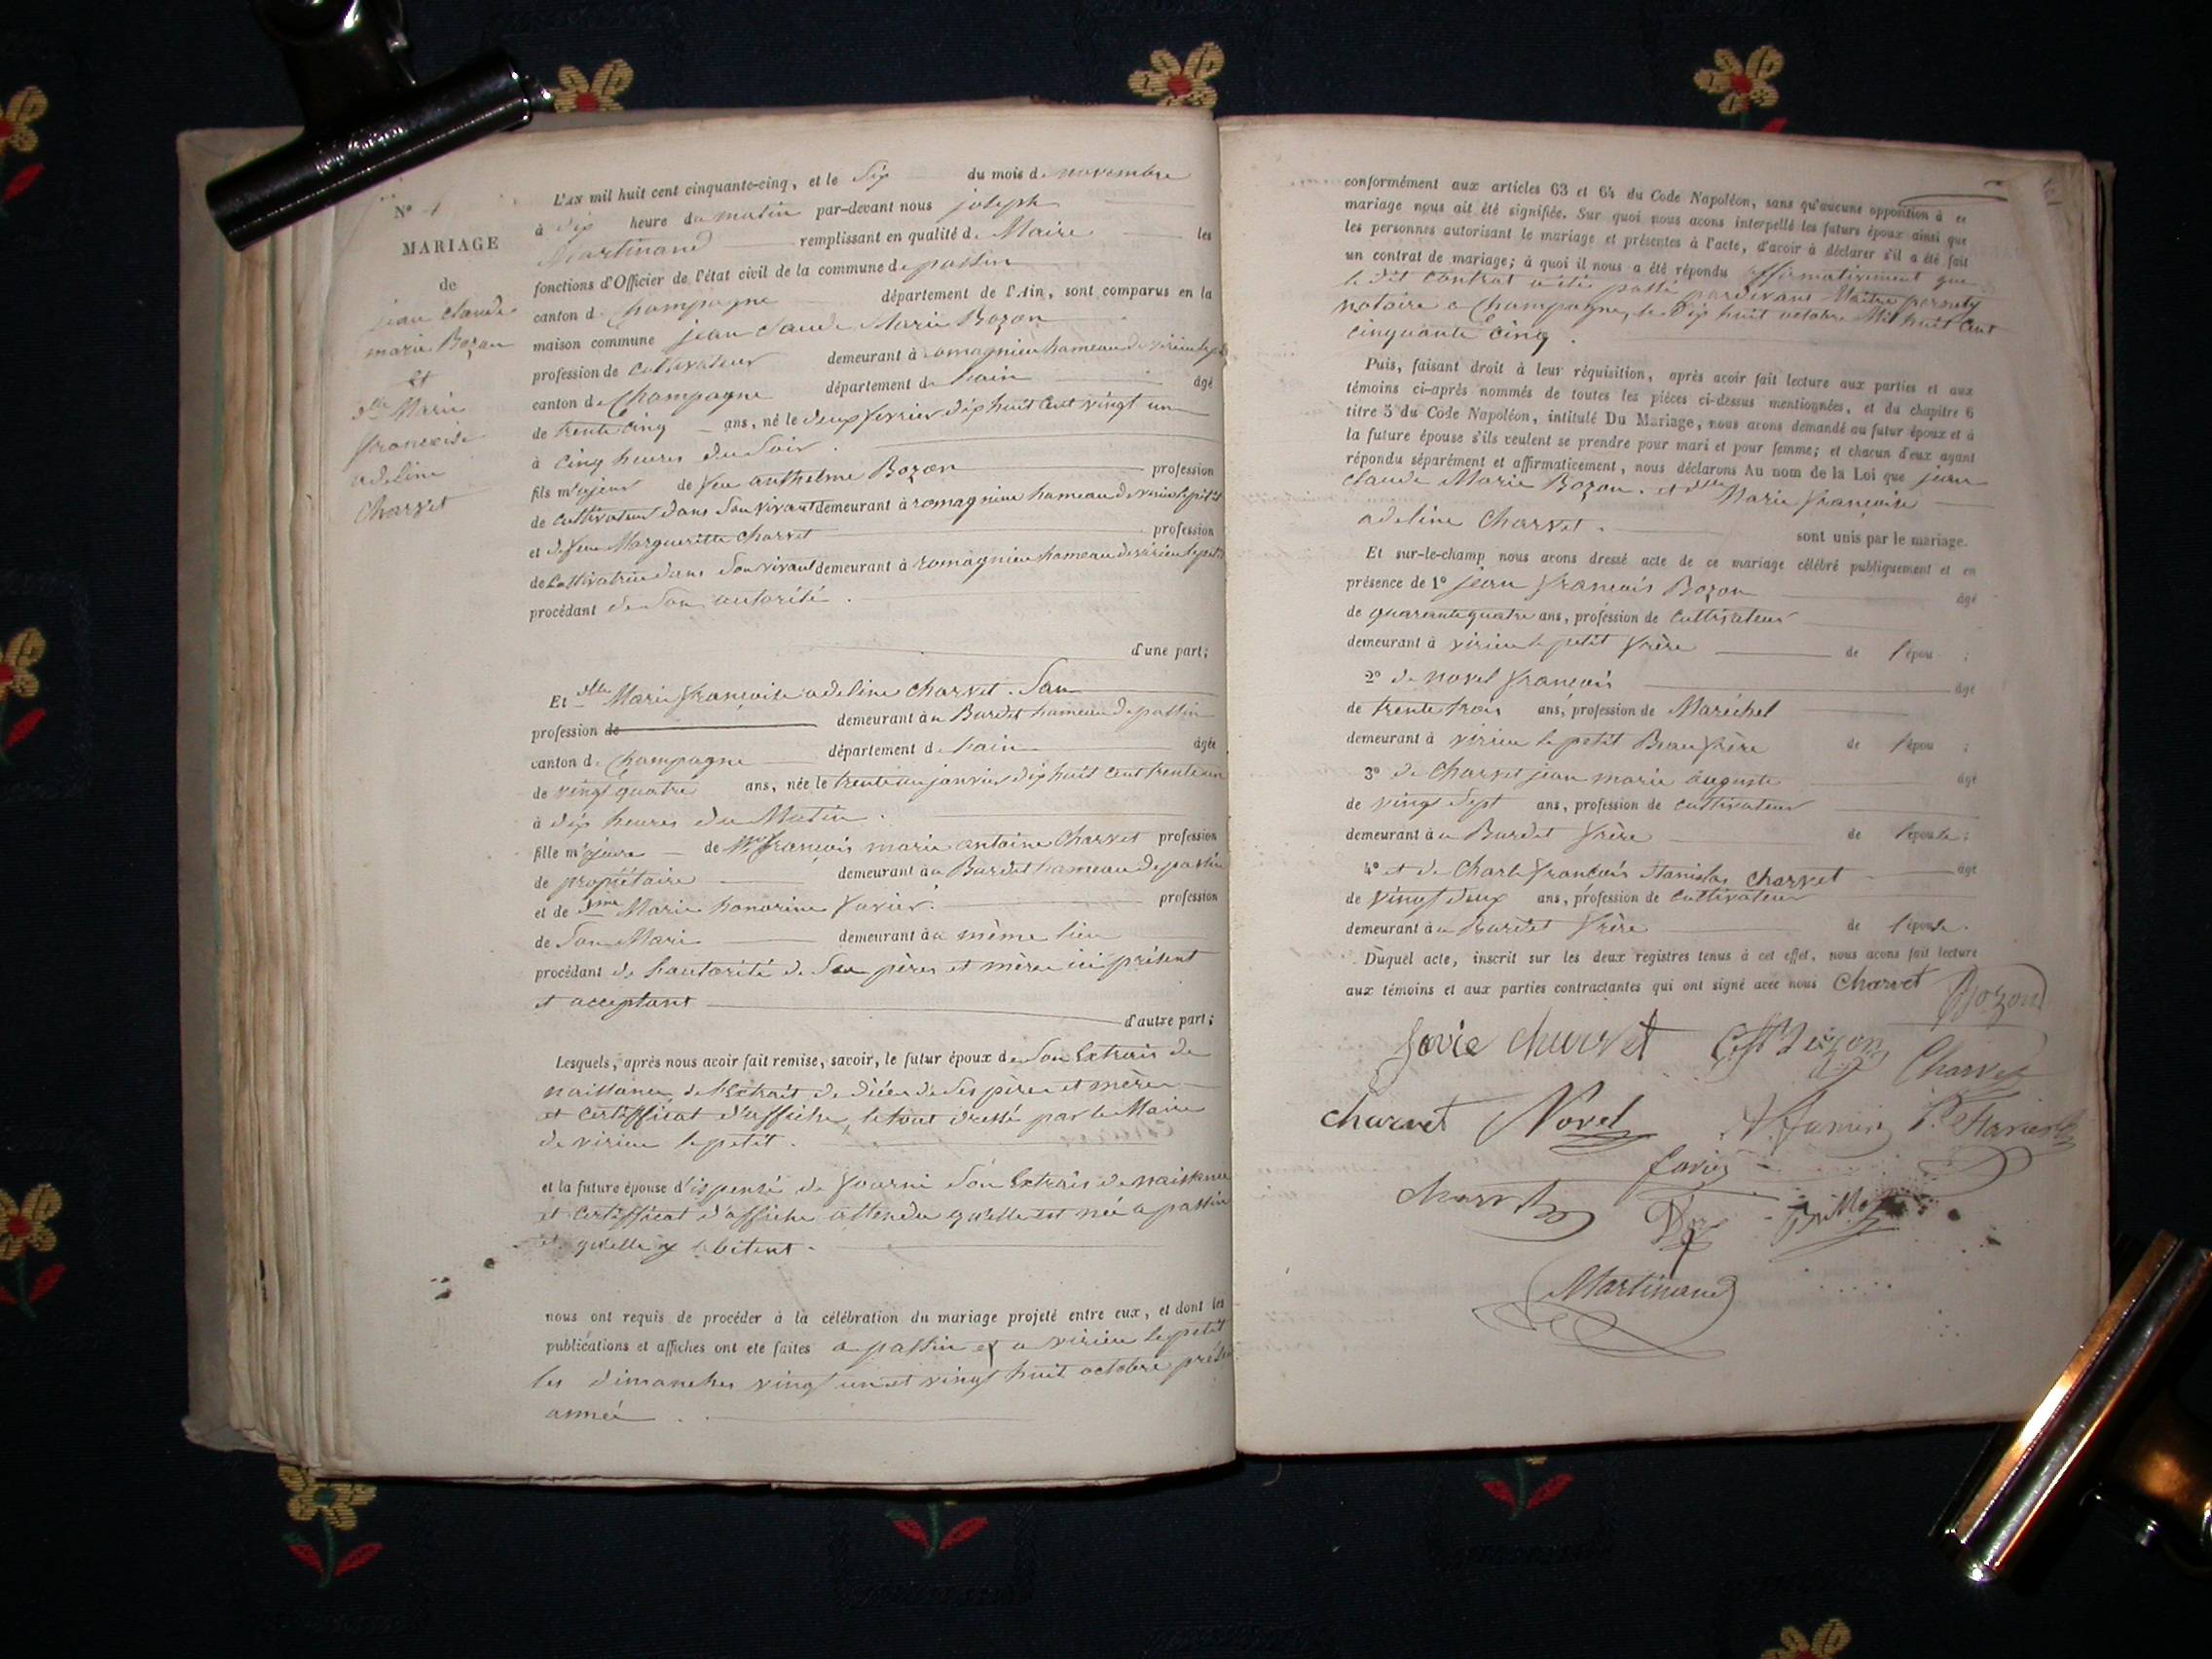 N° 4
MARIAGE
de
jean claude
marie Bozon
et
dlle Marie
francoise
adeline
Charvet
L'AN mil huit cent cinquante-cinq, et le Six du mois de novembre
à dix heure du matin par-devant nous joseph
Martinand remplissant en qualité de Maire les
fonctions d'Officier de l'état civil de la commune de passin
canton de Champagne département de l'Ain, sont comparus en la
maison commune jean claude Marie Bozon
profession de cultivateur demeurant à romagnieu hameau de virieu le petit
canton de Champagne département de l'ain âgé
de trente cinq ans, né le deux fevrier dix huit Cent vingt un
à cinq heures du Soir.
fils majeur de feu anthelme Bozon profession
de cultivateur dans Son vivant demeurant à romagnieu hameau de virieu le petit
et de feue Margueritte Charvet profession
de Cultivatrice dans Son vivant demeurant à romagnieu hameau de virieu le petit
procédant de Son autorité.
d'une part;
Et dlle Marie françoise adeline Charvet. San
profession de demeurant à u Burdet hameau de passin
canton de Champagne département de l'ain âgée
de vingt quatre ans, née le trente un janvier dix huit Cent trente un
à dix heures du Matin.
fille majeure de Mr françois marie antoine Charvet profession
de propriétaire demeurant à u Burdet hameau de passin
et de Dme Marie honorine favier. profession
de Son Mari demeurant à u même lieu
procédant de l'autorité de Ses pères et mère ici présent
et acceptant
d'autre part;
Lesquels, après nous avoir fait remise, savoir, le futur époux de Son Extrais de
naissance, de l'Extrait de décès de Ses père et mère
et certifficat d'affiche, le tout dressé par le Maire
de virieu le petit.
et la future épouse d'ispensé de fourni Son Extrais de naissance
et certifficat d'affiche attendu qu'elle est née a passin
et qu'elle y abitent.
nous ont requis de procéder à la célébration du mariage projeté entre eux, et dont les
publications et affiches ont été faites a passin et a virieu le petit
les dimanches vingt un et vingt huit octobre présente
année.
conformément aux articles 63 et 64 du Code Napoléon, sans qu'aucune opposition à ce
mariage nous ait été signifiée. Sur quoi nous avons interpellé les futurs époux ainsi que
les personnes autorisant le mariage et présentes à l'acte, d'avoir à déclarer s'il a été fait
un contrat de mariage; à quoi il nous a été répondu affirmativement que
le dit Contrat a été passé pardevant Maître
notaire a Champagne, le Dix huit octobre Mil huit Cent
cinquante cinq.
Puis, faisant droit à leur réquisition, après avoir fait lecture aux parties et aux
témoins ci-après nommés de toutes les pièces ci-dessus mentionnées, et du chapitre 6
titre 5 du Code Napoléon, intitulé Du Mariage, nous avons demandé au futur époux et à
la future épouse s'ils veulent se prendre pour mari et pour femme; et chacun d'eux ayant
répondu séparément et affirmativement, nous déclarons Au nom de la Loi que jean
Claude Marie Bozon. et dlle Marie françoise
adeline Charvet. sont unis par le mariage.
Et sur-le-champ nous avons dressé acte de ce mariage célébré publiquement et en
présence de 1° jean françois Bozon âgé
de quarante quatre ans, profession de Cultivateur
demeurant à virieu le petit frère de l'épou ;
2° de novel françois âgé
de trente trois ans, profession de Maréchel
demeurant à virieu le petit Beaufrère de l'épou ;
3° de Charvet jean marie auguste âgé
de vingt Sept ans, profession de cultivateur
demeurant à u Burdet frère de l'épouse;
4° et de Charle françois Stanislas Charvet âgé
de vingt deux ans, profession de Cultivateur
demeurant à u Burdet frère de l'épouse.
Duquel acte, inscrit sur les deux registres tenus à cet effet, nous avons fait lecture
aux témoins et aux parties contractantes qui ont signé avec nous Charvet Bozon
favie charvet Bozon Charvet
charvet Novel
favier
charvet
Martinand